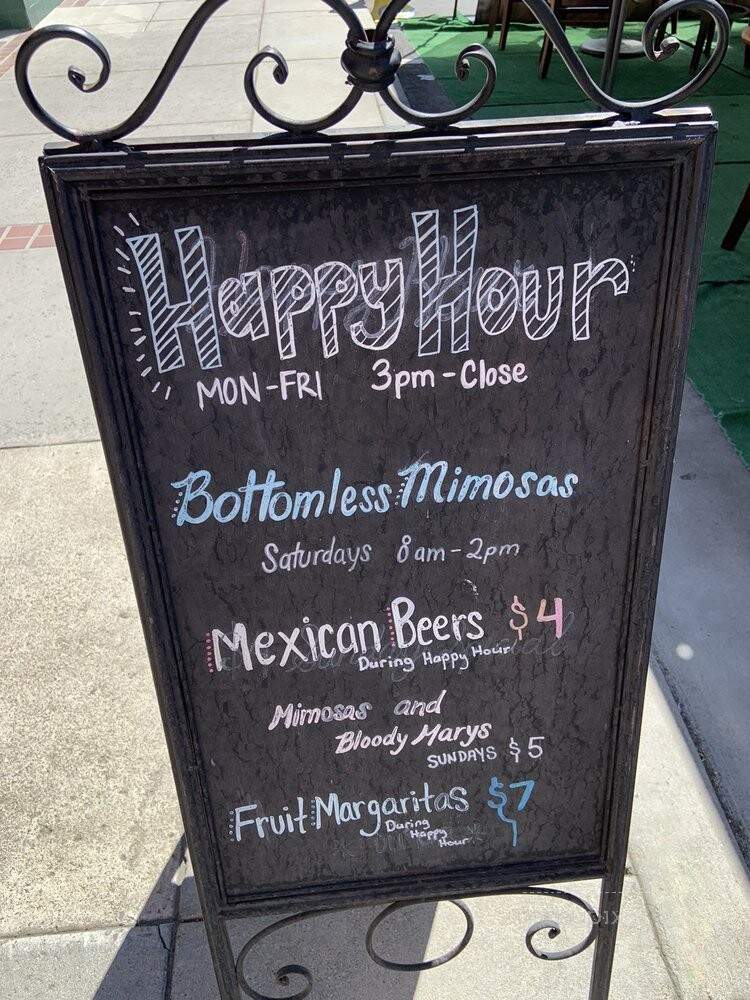 Happy Hour
MON-FRI 3pm-Close
Bottomless Mimosas
Saturdays 8am-2pm
Mexican Beers $4
During Happy Hour
Mimosas and
Bloody Marys
SUNDAYS $5
Fruit Margaritas $7
During
Happy
Hour